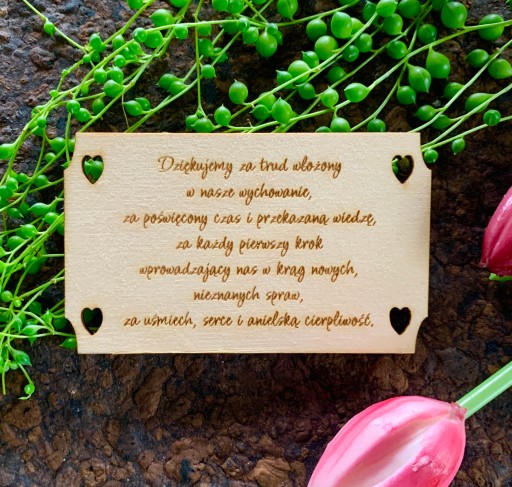 Dziękujemy za trud włożony
w nasze wychowanie,
za poświęcony czas i przekazaną wiedzę,
za każdy pierwszy krok
wprowadzający nas w krąg nowych,
nieznanych spraw,
za uśmiech, serce i anielską cierpliwość.